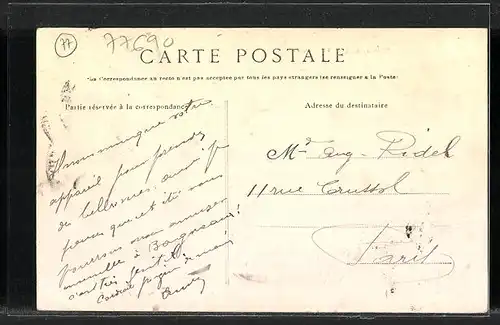 77
77690
CARTE POSTALE
La Correspondance au recto n'est pas acceptée par tous les pays étrangers (se renseigner à la Poste)
Partie réservée à la correspondance
Adresse du destinataire
Il nous manque votre
appareil pour prendre
de belles vues, aussi je
pense que cet été nous
pourrons nous amuser
ensemble à
Mr Aug. Ridel
11 rue Crussol
Paris